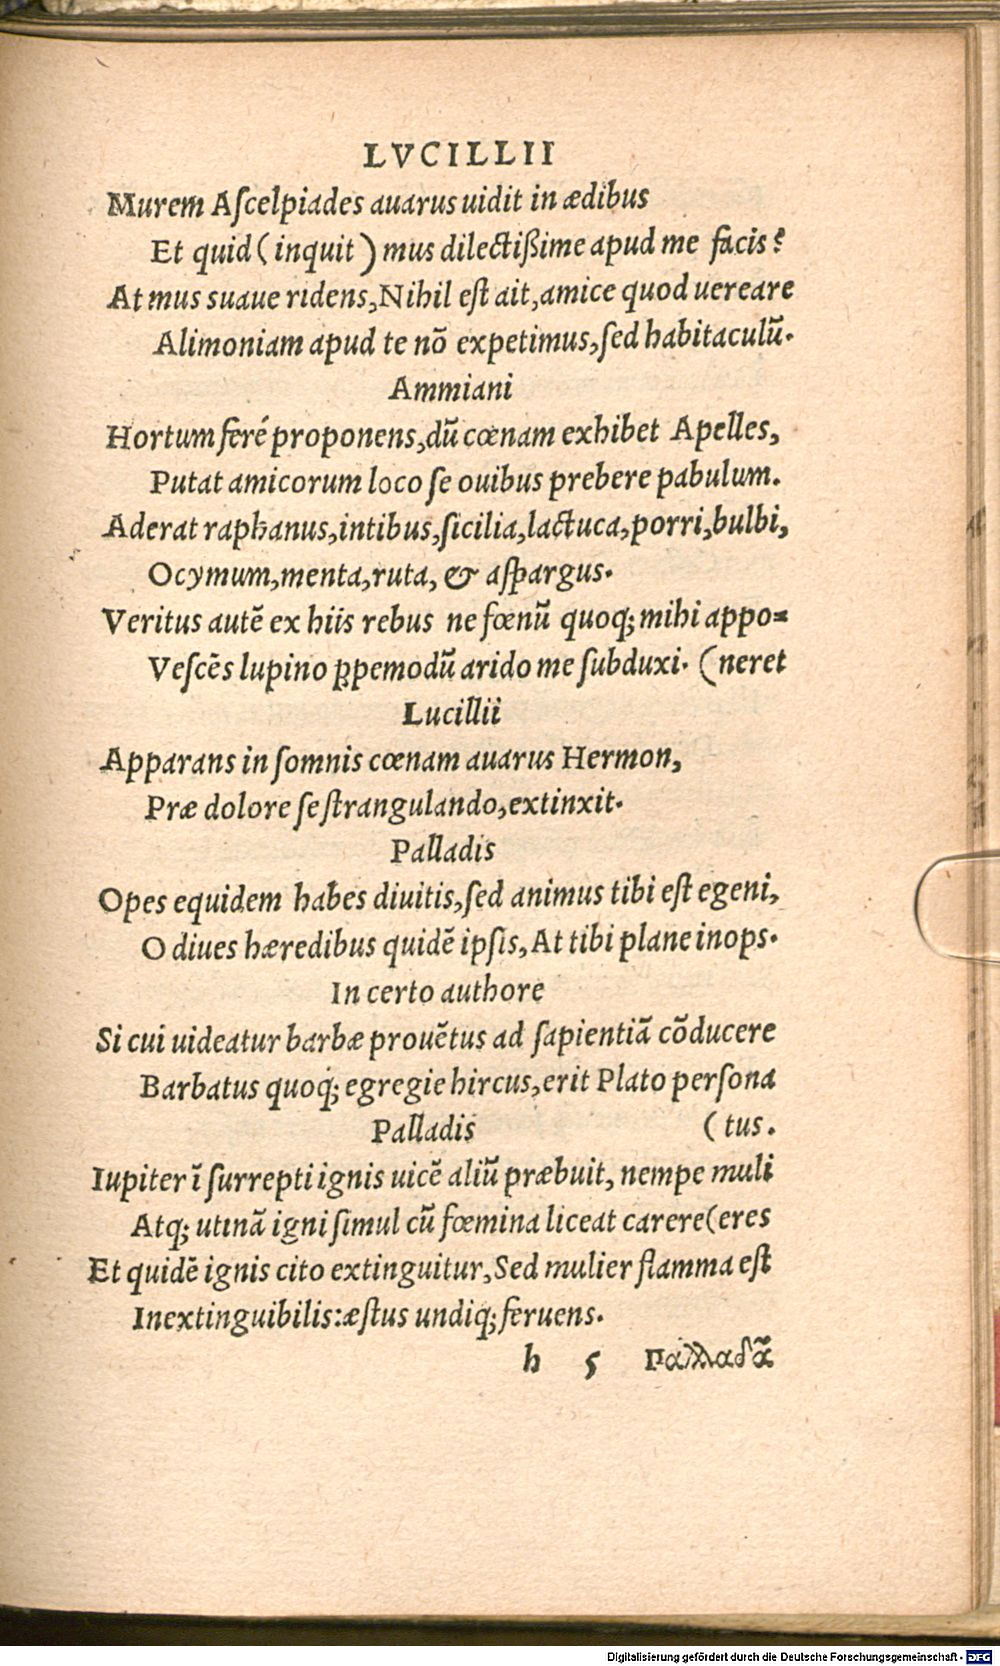 LVCILLII
Murem Aſcelpiades auarus uidit in ædibus
Et quid ( inquit ) mus dilectißime apud me facis?
At mus suaue ridens, Nihil eſt ait, amice quod uereare
Alimoniam apud te nõ expetimus, ſed habitaculũ.
Ammiani
Hortum feré proponens, dũ cœnam exhibet Apelles,
Putat amicorum loco ſe ouibus prebere pabulum.
Aderat raphanus, intibus, ſicilia, lactuca, porri, bulbi,
Ocymum, menta, ruta, & aſpargus.
Veritus autẽ ex hiis rebus ne fœnũ quoq; mihi appo=
Veſcẽs lupino ꝑpemodũ arido me ſubduxi. (neret
Lucillii
Apparans in ſomnis cœnam auarus Hermon,
Præ dolore ſe ſtrangulando, extinxit.
Palladis
Opes equidem habes diuitis, ſed animus tibi eſt egeni,
O diues hæredibus quidẽ ipſis, At tibi plane inops.
In certo authore
Si cui uideatur barbæ prouẽtus ad ſapientiã cõducere
Barbatus quoq; egregie hircus, erit Plato perſona
Palladis (tus.
Iupiter ĩ ſurrepti ignis uicẽ aliũ præbuit, nempe muli
Atq; utinã igni ſimul cũ fœmina liceat carere (eres
Et quidẽ ignis cito extinguitur, Sed mulier flamma eſt
Inextinguibilis: æſtus undiq; feruens.
h 5 Παλλαδᾶ
Digitalisierung gefördert durch die Deutsche Forschungsgemeinschaft - DFG